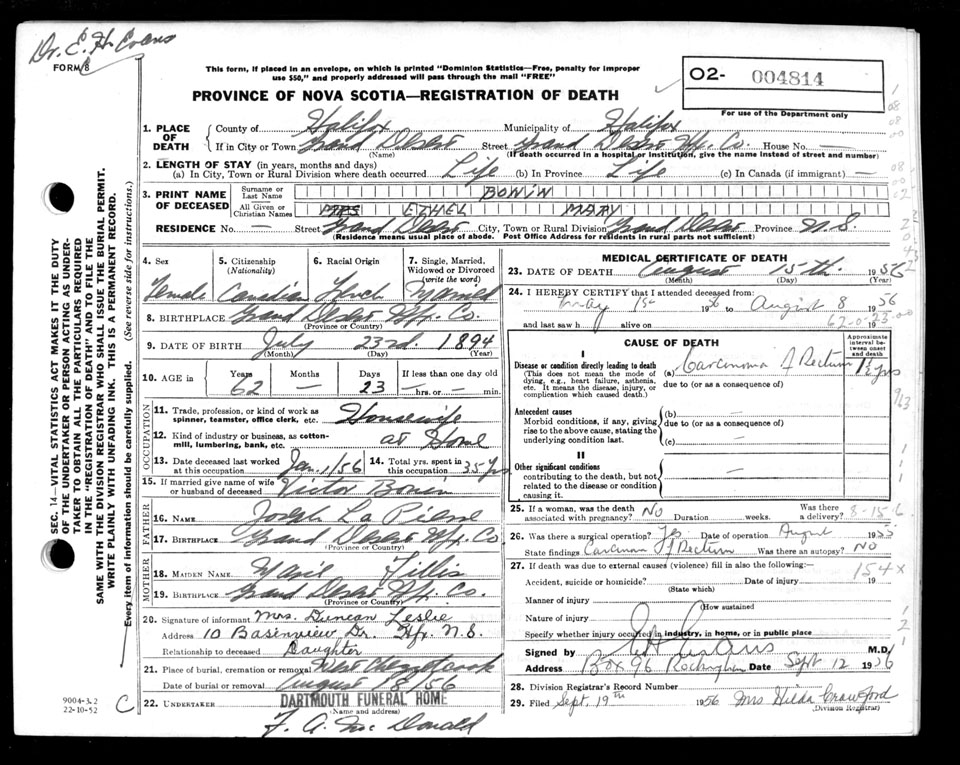 Dr. E. H. Evans
FORM 8
This form, if placed in an envelope, on which is printed "Dominion Statistics—Free, penalty for improper
use $50," and properly addressed will pass through the mail "FREE"
O2- 004814
For use of the Department only
PROVINCE OF NOVA SCOTIA—REGISTRATION OF DEATH
1. PLACE OF DEATH County of Halifax Municipality of Halifax
If in City or Town Grand Desert Street Grand Desert Hfx. Co. House No. —
(Name) (If death occurred in a hospital or institution, give the name instead of street and number)
2. LENGTH OF STAY (in years, months and days)
(a) In City, Town or Rural Division where death occurred Life (b) In Province Life (c) In Canada (if immigrant) —
3. PRINT NAME OF DECEASED Surname or Last Name BONIN
All Given or Christian Names MRS ETHEL MARY
RESIDENCE No. — Street Grand Desert City, Town or Rural Division Grand Desert Province N.S.
(Residence means usual place of abode. Post Office Address for residents in rural parts not sufficient)
4. Sex Female
5. Citizenship (Nationality) Canadian
6. Racial Origin French
7. Single, Married, Widowed or Divorced (write the word) Married
8. BIRTHPLACE Grand Desert Hfx. Co.
(Province or Country)
9. DATE OF BIRTH July 23rd 1894
(Month) (Day) (Year)
10. AGE in Years 62 Months — Days 23 If less than one day old — hrs. or — min.
OCCUPATION
11. Trade, profession, or kind of work as spinner, teamster, office clerk, etc. Housewife
12. Kind of industry or business, as cotton-mill, lumbering, bank, etc. at Home
13. Date deceased last worked at this occupation Jan. 1/56
14. Total yrs. spent in this occupation 35 yrs
15. If married give name of wife or husband of deceased Victor Bonin
FATHER
16. NAME Joseph La Pierre
17. BIRTHPLACE Grand Desert Hfx. Co
(Province or Country)
MOTHER
18. MAIDEN NAME Fillis
19. BIRTHPLACE Grand Desert Hfx. Co.
(Province or Country)
20. Signature of informant Mrs. Duncan Leslie
Address 10 Basinview Dr. Hfx. N.S.
Relationship to deceased Daughter
21. Place of burial, cremation or removal West Chezzetcook
Date of burial or removal August /56
22. UNDERTAKER DARTMOUTH FUNERAL HOME
(Name and address)
F. A. Mc Donald
MEDICAL CERTIFICATE OF DEATH
23. DATE OF DEATH August 15th. 1956
(Month) (Day) (Year)
24. I HEREBY CERTIFY that I attended deceased from:
May 15 1956 to August 8 1956
and last saw h alive on 19
62-0-23-00
CAUSE OF DEATH
Approximate interval between onset and death
I
Disease or condition directly leading to death (a) Carcinoma of Rectum 1½ yrs
(This does not mean the mode of dying, e.g., heart failure, asthenia, etc. It means the disease, injury, or complication which caused death.)
due to (or as a consequence of)
Antecedent causes (b) —
Morbid conditions, if any, giving rise to the above cause, stating the underlying condition last.
due to (or as a consequence of)
(c) —
II
Other significant conditions —
contributing to the death, but not related to the disease or condition causing it.
25. If a woman, was the death associated with pregnancy? No Duration weeks. Was there a delivery?
8-15-6
26. Was there a surgical operation? Yes Date of operation August 1955
State findings Carcinoma of Rectum Was there an autopsy? No
27. If death was due to external causes (violence) fill in also the following:—
154x
Accident, suicide or homicide? Date of injury 19
(State which)
Manner of injury
(How sustained
Nature of injury
Specify whether injury occurred in industry, in home, or in public place
Signed by E H Evans M.D.
Address Box 96 Rockingham Date Sept 12 1956
28. Division Registrar's Record Number
29. Filed Sept. 19th 1956 Mrs Hilda Crawford
(Division Registrar)
SEC. 14—VITAL STATISTICS ACT MAKES IT THE DUTY
OF THE UNDERTAKER OR PERSON ACTING AS UNDER-
TAKER TO OBTAIN ALL THE PARTICULARS REQUIRED
IN THE "REGISTRATION OF DEATH" AND TO FILE THE
SAME WITH THE DIVISION REGISTRAR WHO SHALL ISSUE THE BURIAL PERMIT.
WRITE PLAINLY WITH UNFADING INK. THIS IS A PERMANENT RECORD.
Every item of information should be carefully supplied. (See reverse side for instructions.)
9004-3.2
22-10-52
C